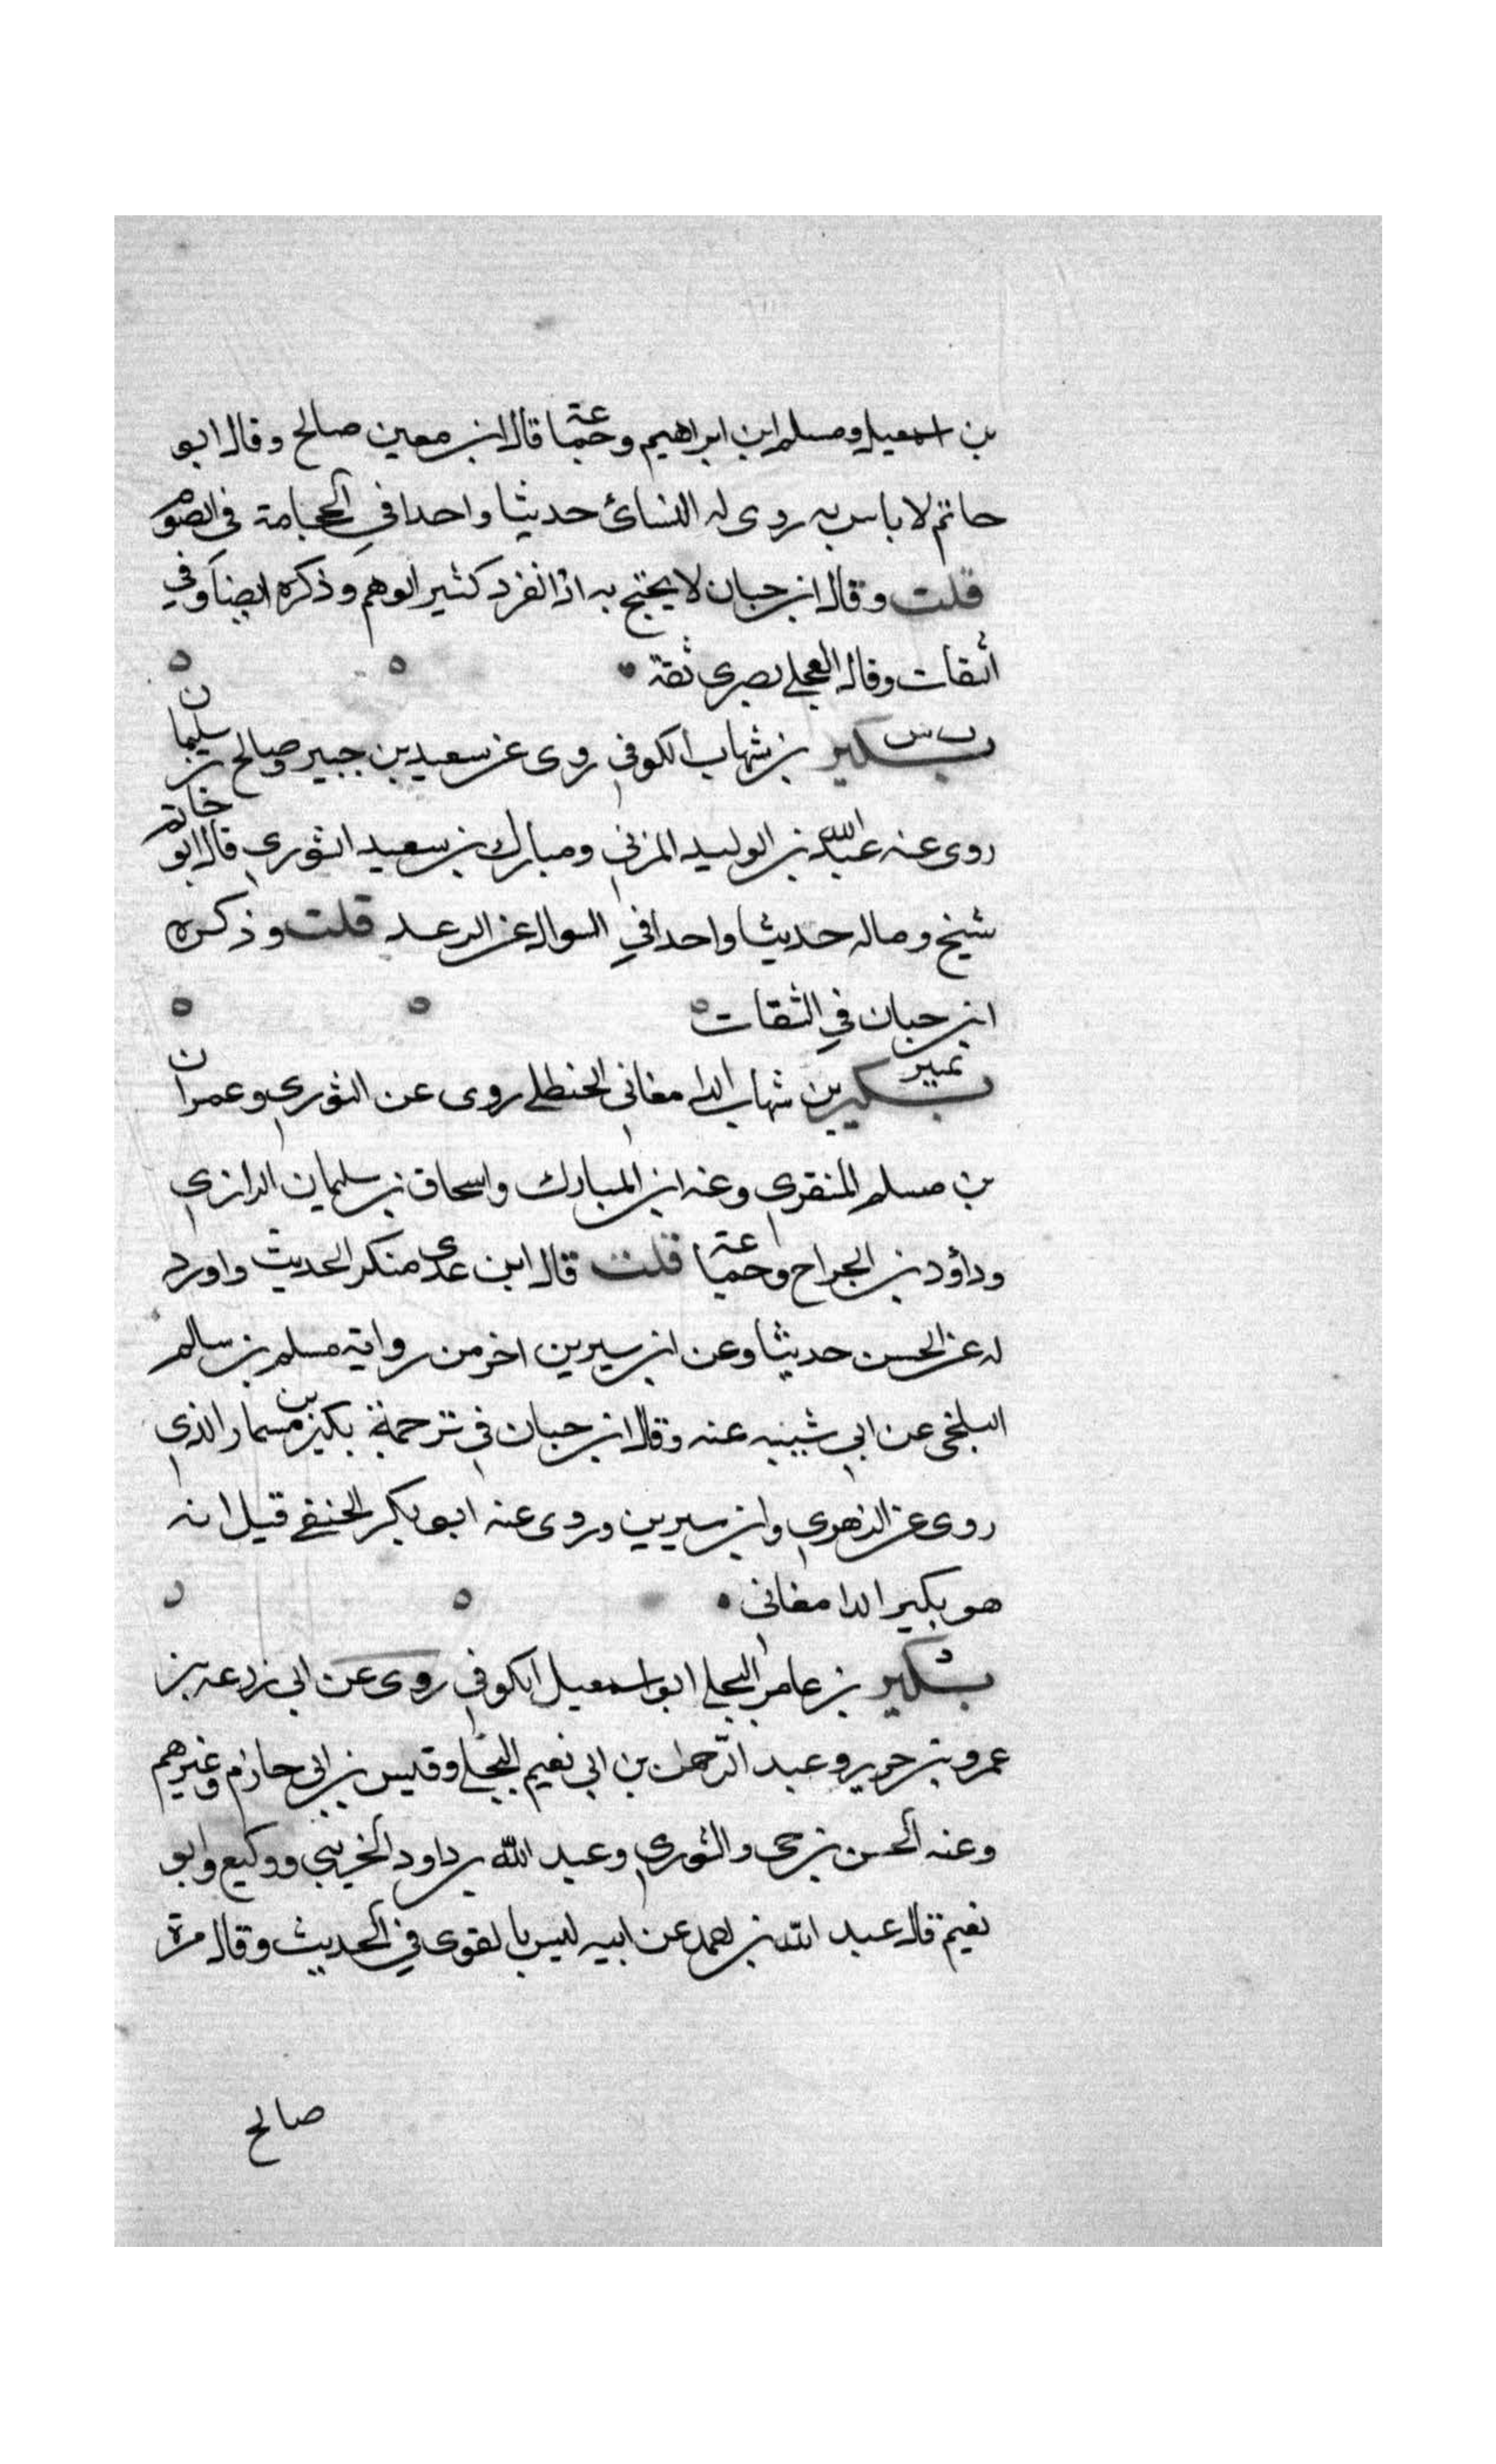 بن اسمعيل ومسلم ابن ابراهيم وجماعة قال ابن معين صالح وقال ابو
حاتم لا باس به روى له النسائ حديثا واحدا في الحجامة في الصوم
قلت وقال ابن حبان لا يحتج به اذا انفرد كثير الوهم وذكره ايضا في
الثقات وقال العجلي بصرى ثقة
ت س بكير بن شهاب الكوفي روى عن سعيد بن جبير وصالح بن سليمان
روى عنه عبد الله بن الوليد المزني ومبارك بن سعيد الثوري قال ابو حاتم
شيخ وماله حديثا واحدا في السوال عن الرعد قلت وذكره
ابن حبان في الثقات
تمييز بكير بن شهاب الدامغاني الحنظلي روى عن الثوري وعمران
بن مسلم المنقري وعنه ابن المبارك واسحاق بن سليمان الرازي
وداؤد بن الجراح وجماعة قلت قال ابن عدى منكر الحديث واورد
له عن الحسن حديثا وعن ابن سيرين اخر من رواية مسلم بن سالم
البلخي عن ابي شيبه عنه وقال ابن حبان في ترجمة بكير بن مسمار الذي
روى عن الزهري وابن سيرين وروى عنه ابو بكر الحنفي قيل انه
هو بكير الدامغاني
بكير بن عامر البجلي ابو اسمعيل الكوفي روى عن ابي زرعه بن
عمرو بن جرير وعبد الرحمن بن ابي نعيم البجلي وقيس بن ابي حازم وغيرهم
وعنه الحسن بن حي والثوري وعبد الله بن داود الخريبي ووكيع وابو
نعيم قال عبد الله بن احمد عن ابيه ليس بالقوى في الحديث وقال مرة
صالح